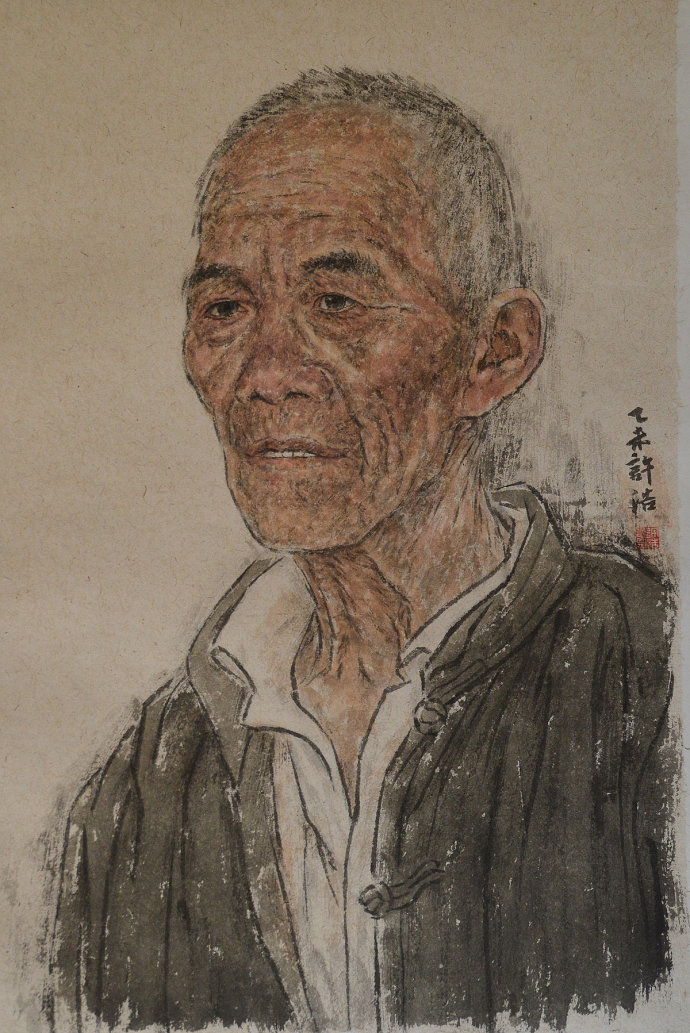 乙未許浩